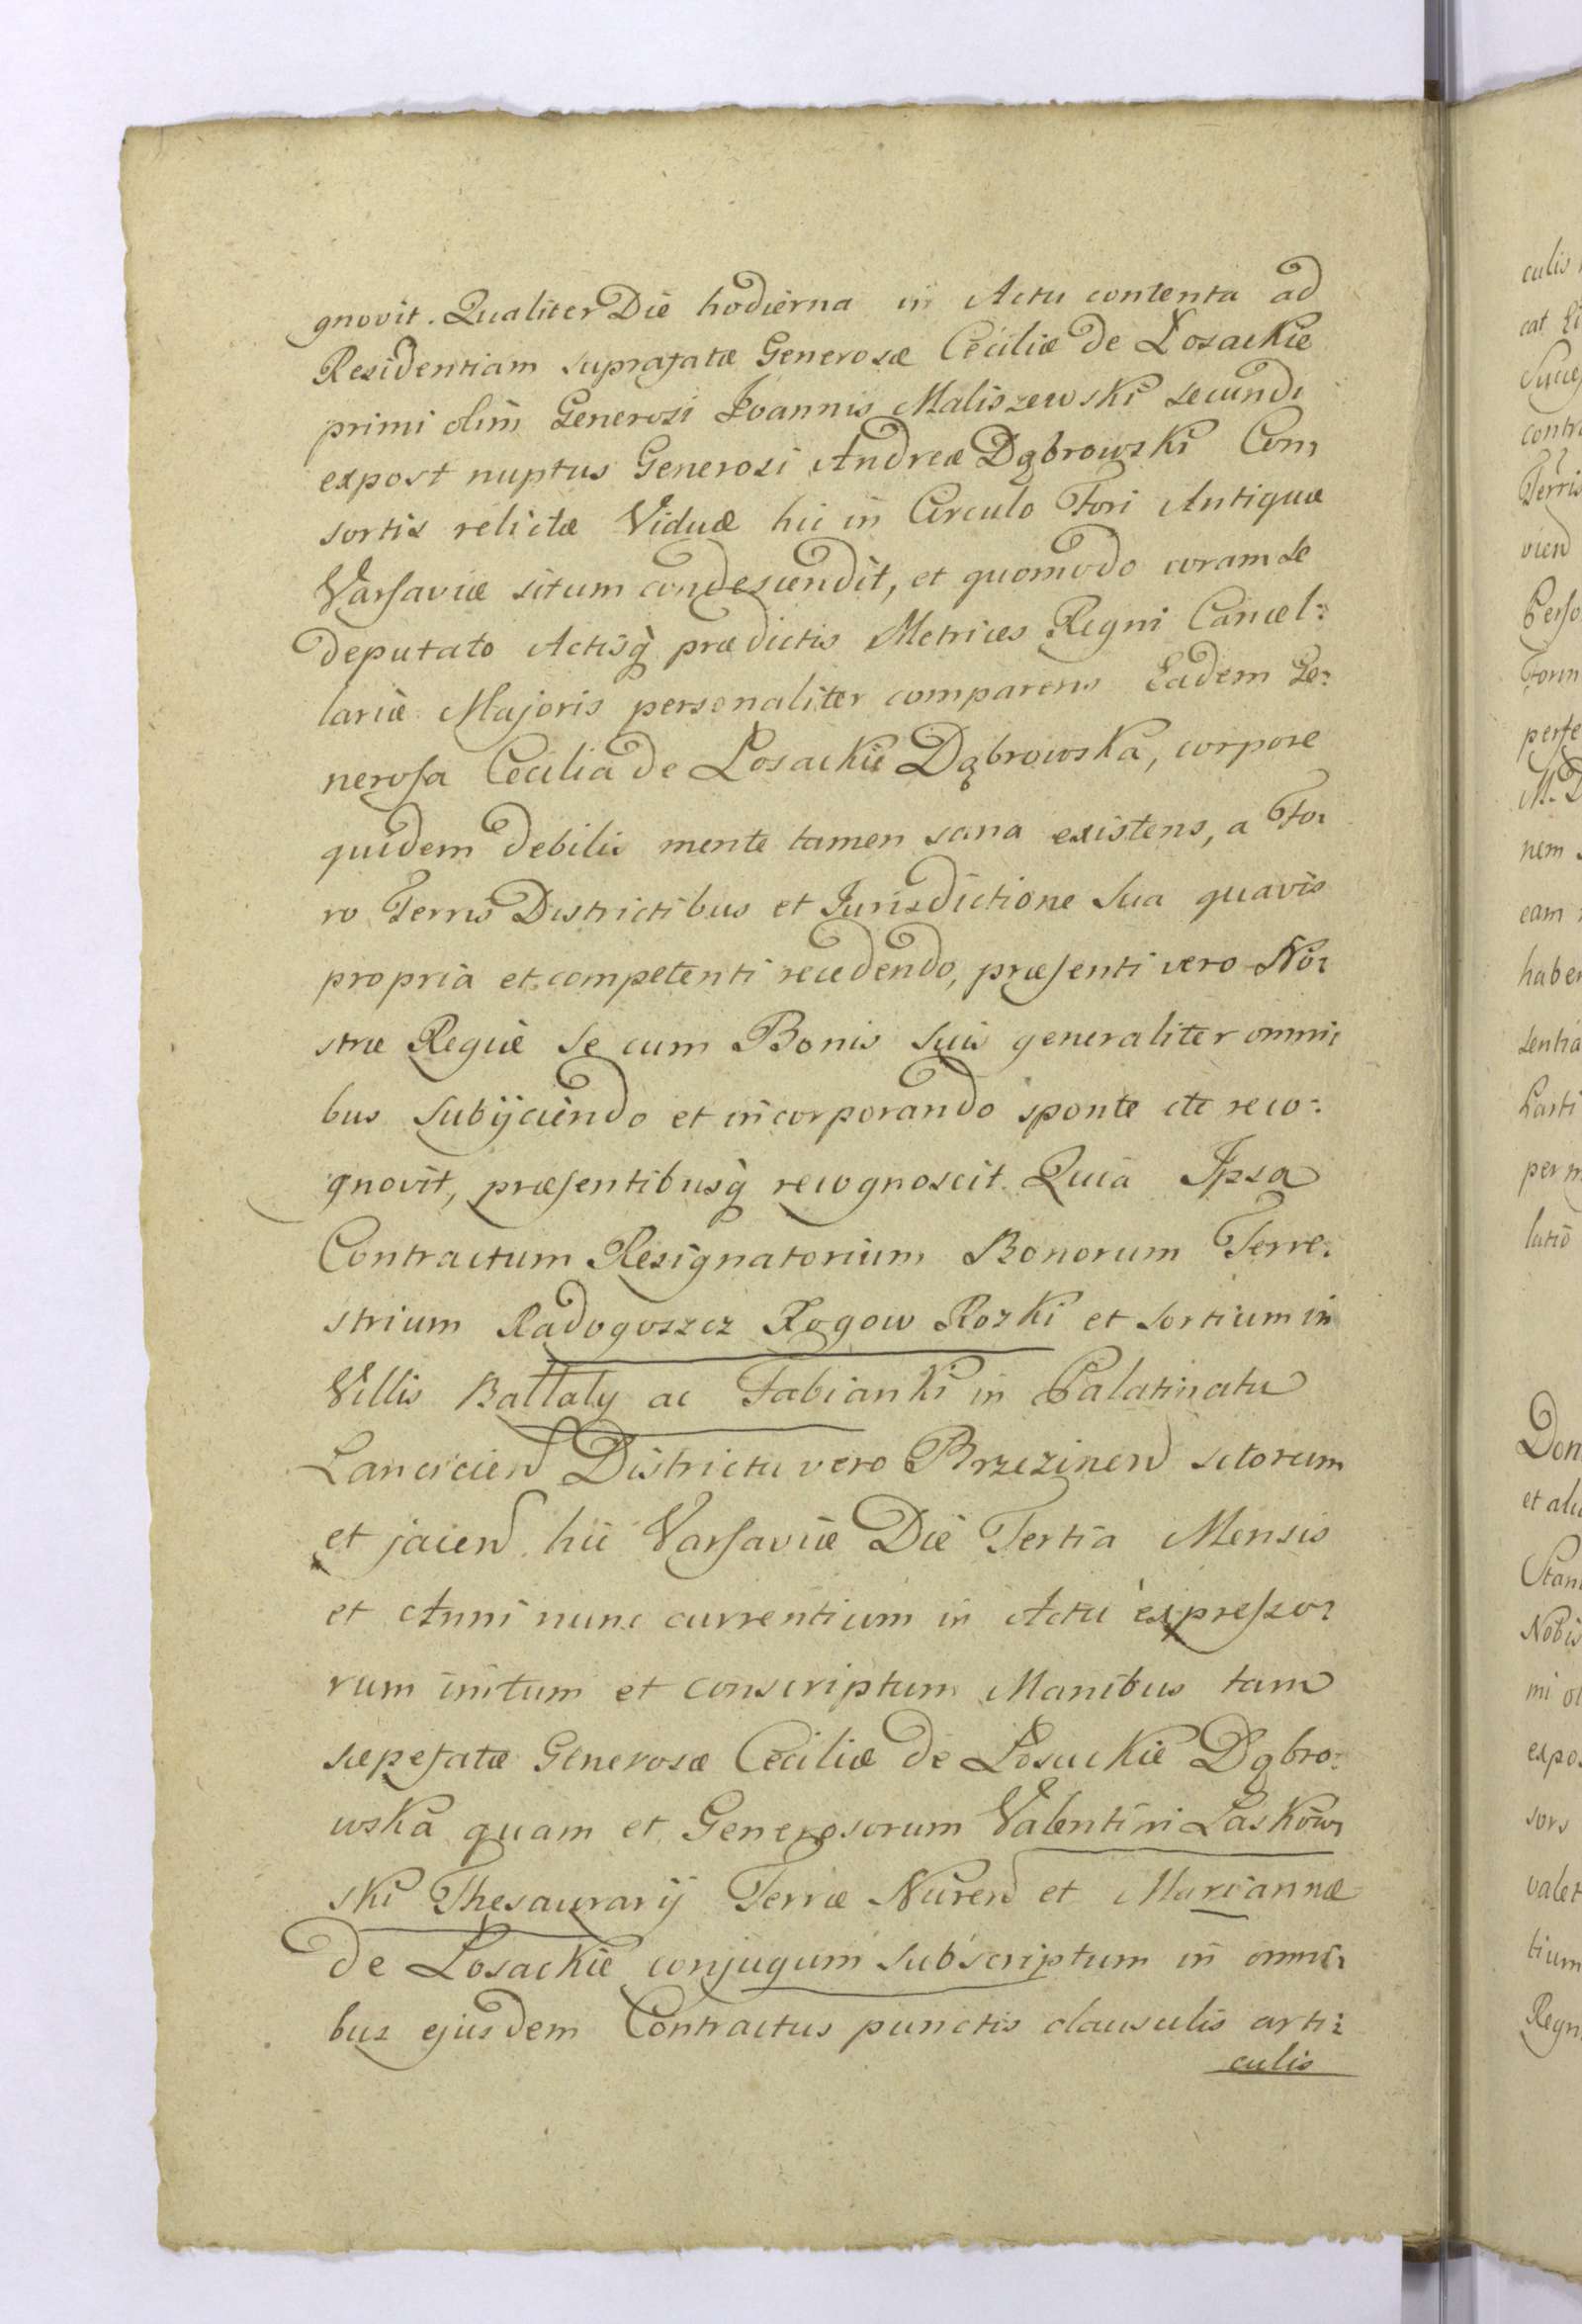 gnovit. Qualiter Die hodierna in Actu contenta ad
Residentiam suprafatæ Generosæ Ceciliæ de Łosackie
primi olim Generosi Joannis Maliszewski secundi
expost nuptus Generosi Andreæ Dąbrowski Con,
sortis relictæ Viduæ hic in Circulo Fori Antiquæ
Varsaviæ situm condescendit, et quomodo coram se
deputato Actisq̀ prædictis Metrices Regni Cancel:
lariæ Majoris personaliter comparens Eadem Ge:
nerosa Cecilia de Łosackie Dąbrowska, corpore
quidem debilis mente tamen sana existens, a Fo:
ro Terris Districtibus et Jurisdictione Sua quavis
propria et competenti recedendo, præsenti vero No:
stræ Regiæ se cum Bonis Suis generaliter omni,
bus Subijciendo et incorporando sponte etc reco:
gnovit, præsentibusq̀ recognoscit. Quia Ipsa
Contractum Resignatorium Bonorum Terre:
strium Radogoszcz Rogow Rozki et Sortium in
Villis Bałłaty ac Fabianki in Palatinatu
Lancicien Districtu vero Brzezinen sitorum
et jacen hic Varsaviæ Die Tertia Mensis
et Anni nunc currentium in Actu expresso:
rum initum et conscriptum Manibus tam
sæpefatæ Generosæ Ceciliæ de Łosackie Dąbro:
wska quam et Generosorum Valentini Laskow,
ski Thesaurarij Terræ Nuren et Mariannæ
de Łosackie conjugum subscriptum in omni,
bus ejusdem Contractus punctis clausulis arti:
culis